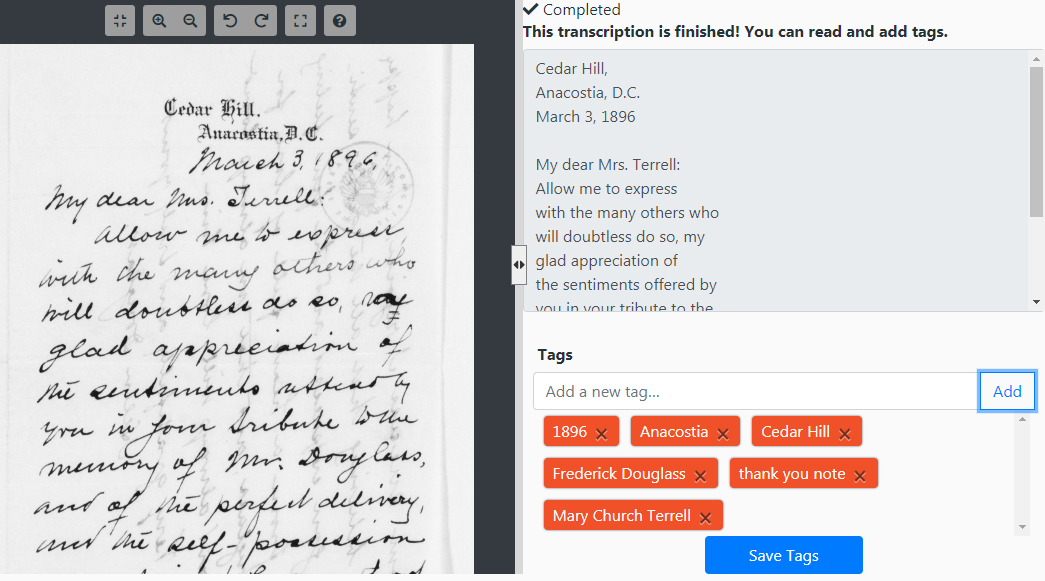 Cedar Hill.
Anacostia, D.C.
March 3, 1896.
My dear Mrs. Terrell:
Allow me to express
with the many others who
will doubtless do so, my
glad appreciation of
the sentiments uttered by
you in your tribute to the
memory of Mr. Douglass,
and of the perfect delivery,
and the self-possession
Completed
This transcription is finished! You can read and add tags.
Cedar Hill,
Anacostia, D.C.
March 3, 1896
My dear Mrs. Terrell:
Allow me to express
with the many others who
will doubtless do so, my
glad appreciation of
the sentiments offered by
you in your tribute to the
Tags
Add a new tag...
Add
1896
Anacostia
Cedar Hill
Frederick Douglass
thank you note
Mary Church Terrell
Save Tags